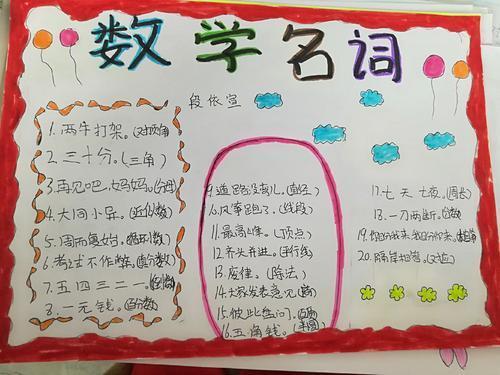 数学名词
段依宣
1.两牛打架。(对顶角)
2.三十分。(三角)
3.再见吧,妈妈。(分母)
4.大同小异。(近似数)
5.周而复始。(循环小数)
6.考试不作弊。(真分数)
7.五四三二一。(倒数)
8.一元钱。(百分数)
9.道路没弯儿。(直径)
10.风筝跑了。(线段)
11.最高峰。(顶点)
12.齐头并进。(平行线)
13.废律。(除法)
14.大家发表意见。
15.彼此盘问。
16.五角钱。(半圆)
17.七天七夜。(周长)
18.一刀两断。
19.你盼我来我盼你来。
20.隔岸相望。